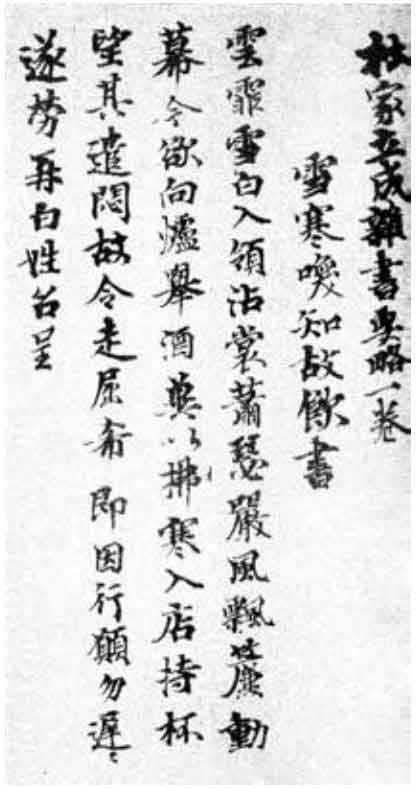 杜家立成雜書要略一卷
雪寒喚知故飲書
雲霏雪白入領沾裳蕭瑟嚴風飄簾動
幕今欲向爐舉酒冀以拂寒入店持杯
望其遣悶故令走屈希即因行願勿遲々
遂勞再白姓名呈